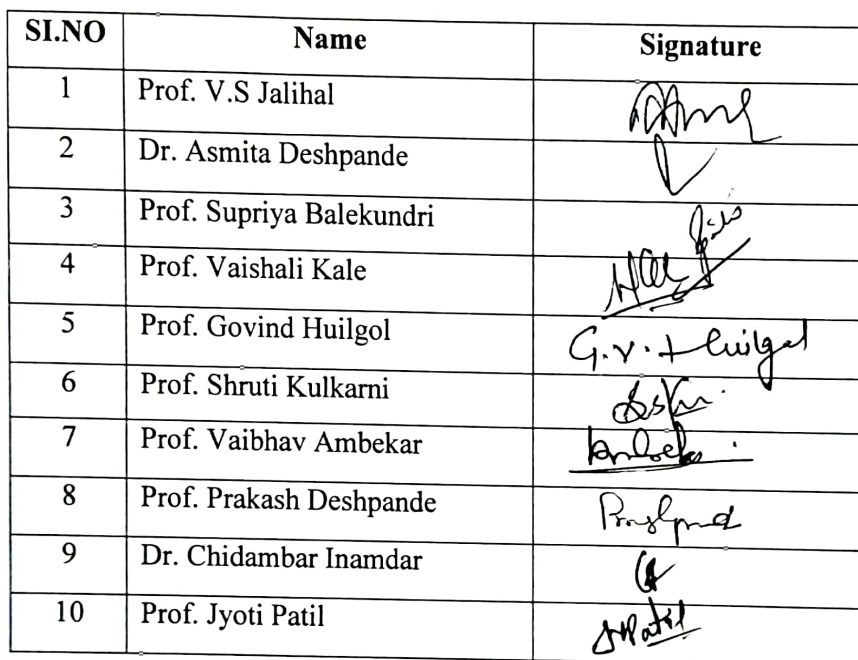 SI.NO Name Signature
1 Prof. V.S Jalihal
2 Dr. Asmita Deshpande
3 Prof. Supriya Balekundri
4 Prof. Vaishali Kale
5 Prof. Govind Huilgol G.V. Huilgol
6 Prof. Shruti Kulkarni
7 Prof. Vaibhav Ambekar
8 Prof. Prakash Deshpande
9 Dr. Chidambar Inamdar
10 Prof. Jyoti Patil JPatil